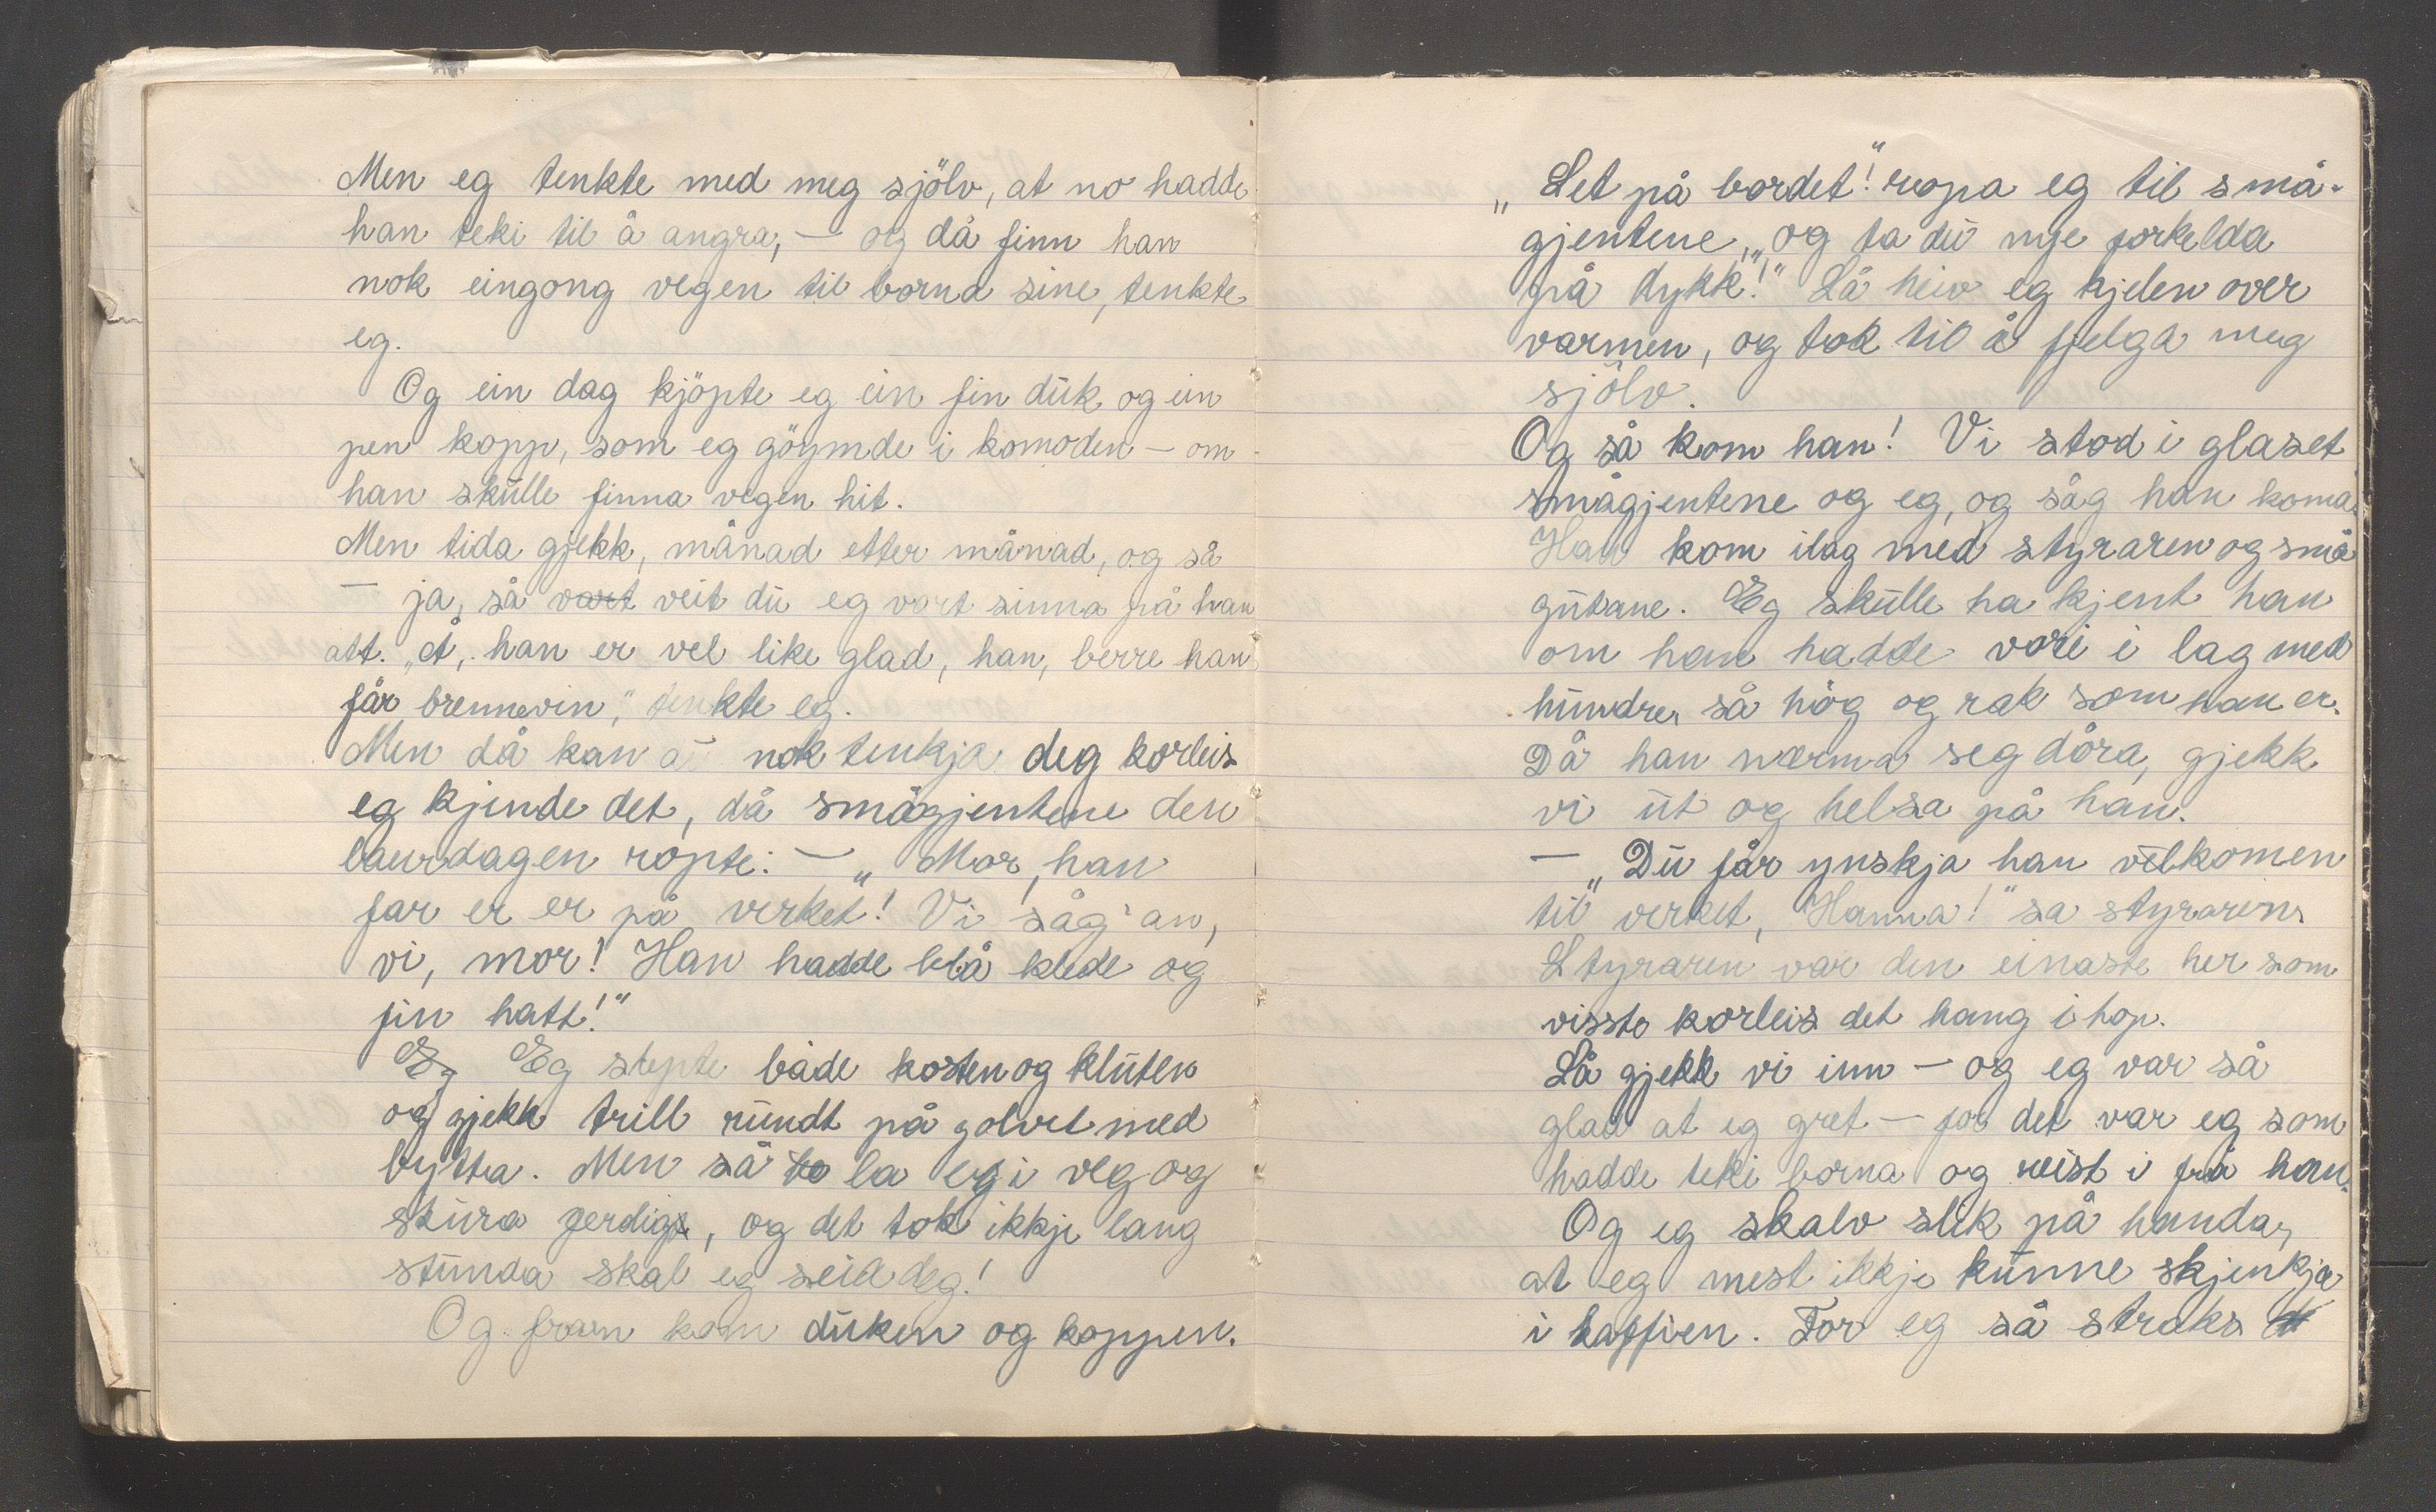 Men eg tenkte med meg sjölv, at no hadde
han teki til å angra, — og då finn han
nok eingong vegen til borna sine, tenkte
eg.
Og ein dag kjöpte eg ein fin duk og ein
pen kopp, som eg göymde i komoden — om
han skulle finna vegen hit.
Men tida gjekk, månad etter månad, og så
— ja, så vart veit du eg vart sinna på han
att. „Å, han er vel like glad, han, berre han
får brennevin," tenkte eg.
Men då kan du nok tenkja deg korleis
eg kjende det, då smågjentene den
laurdagen ropte: — „Mor, han
far er er på verket! Vi såg 'an,
vi, mor! Han hadde blå klede og
fin hatt!"
Eg Eg slepte både kosten og kluten
og gjekk trill rundt på golvet med
bytta. Men så to la eg i veg og
skura ferdig, og det tok ikkje lang
stunda skal eg seia deg!
Og fram kom duken og koppen.
„Let på bordet!" ropa eg til små-
gjentene, „og ta du nye forkelda
på dykk!" Så heiv eg kjelen over
varmen, og tok til å fjelga meg
sjölv.
Og så kom han! Vi stod i glaset
smågjentene og eg, og såg han koma.
Han kom ilag med styraren og små
gutane. Eg skulle ha kjent han
om han hadde vori i lag med
hundre, så hög og rak som han er.
Då han nærma seg döra, gjekk
vi ut og helsa på han.
— „Du får ynskja han velkomen
til verket, Hanna!" sa styraren.
Styraren var den einaste her som
visste korleis det hang i hop.
Så gjekk vi inn — og eg var så
glad at eg gret — for det var eg som
hadde teki borna og reist i frå han.
Og eg skalv slik på handa,
at eg mest ikkje kunne skjenkja
i kaffien. For eg så straks